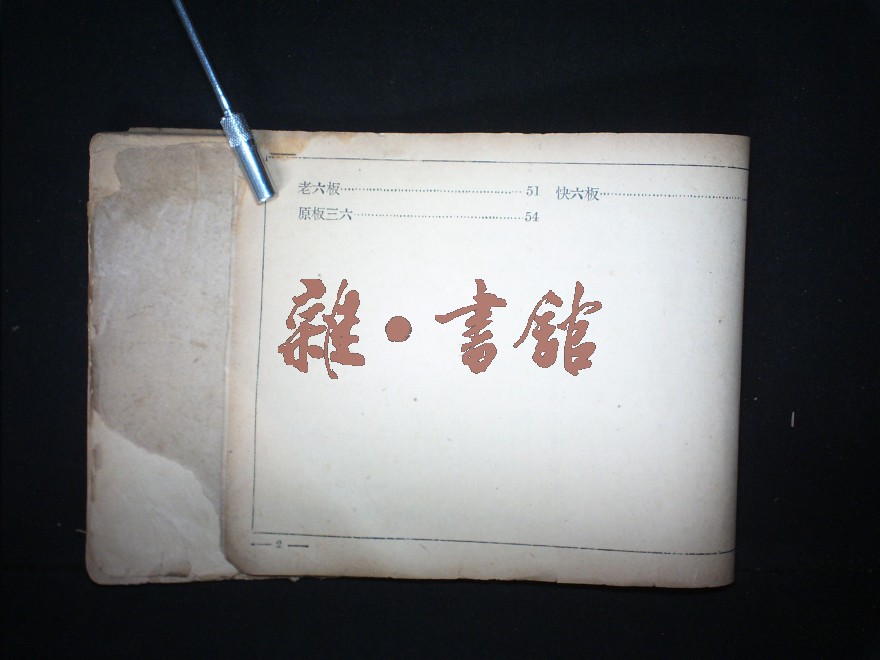 老六板························································ 51 快六板························································
原板三六·····················································54
雜·書館
— 2 —